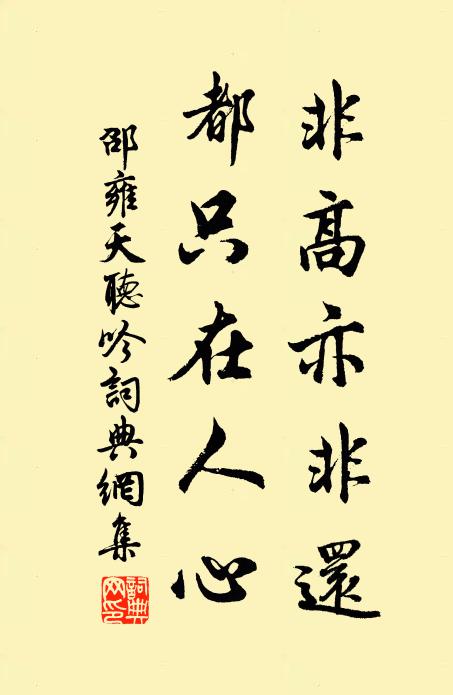 非高亦非還
都只在人心
邵雍天聽吟詞典網集
詞典網印